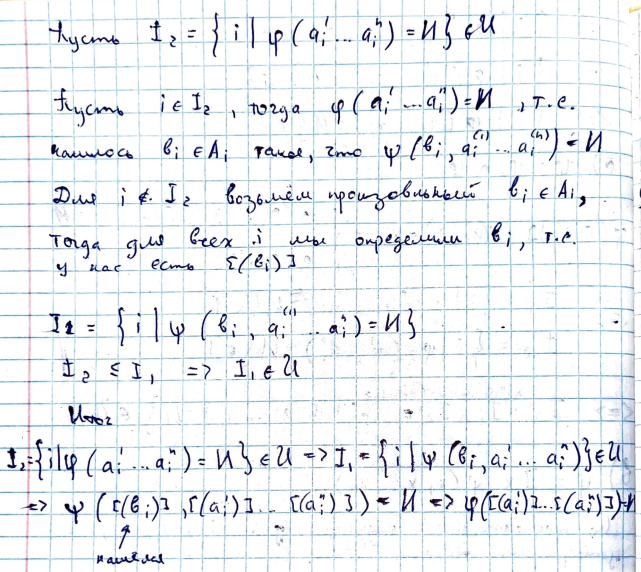 Пусть I₂ = { i | φ(aᵢ¹ ... aᵢⁿ) = И } ∈ U
Пусть i ∈ I₂, тогда φ(aᵢ¹ ... aᵢⁿ) = И, т.е.
нашлось вᵢ ∈ Aᵢ такое, что ψ(вᵢ, aᵢ⁽¹⁾ ... aᵢ⁽ⁿ⁾) = И
Для i ∉ I₂ возьмём произвольный вᵢ ∈ Aᵢ,
тогда для всех i мы определили вᵢ, т.е.
у нас есть [(вᵢ)]
I₁ = { i | ψ(вᵢ, aᵢ⁽¹⁾ ... aᵢⁿ) = И }
I₂ ⊆ I₁ => I₁ ∈ U
Итог
I₂ = { i | φ(aᵢ¹ ... aᵢⁿ) = И } ∈ U => I₁ = { i | ψ(вᵢ, aᵢ¹ ... aᵢⁿ) } ∈ U
=> ψ([(вᵢ)], [(aᵢ¹)] ... [(aᵢⁿ)]) = И => φ([(aᵢ¹)] ... [(aᵢⁿ)]) = И
нашёлся